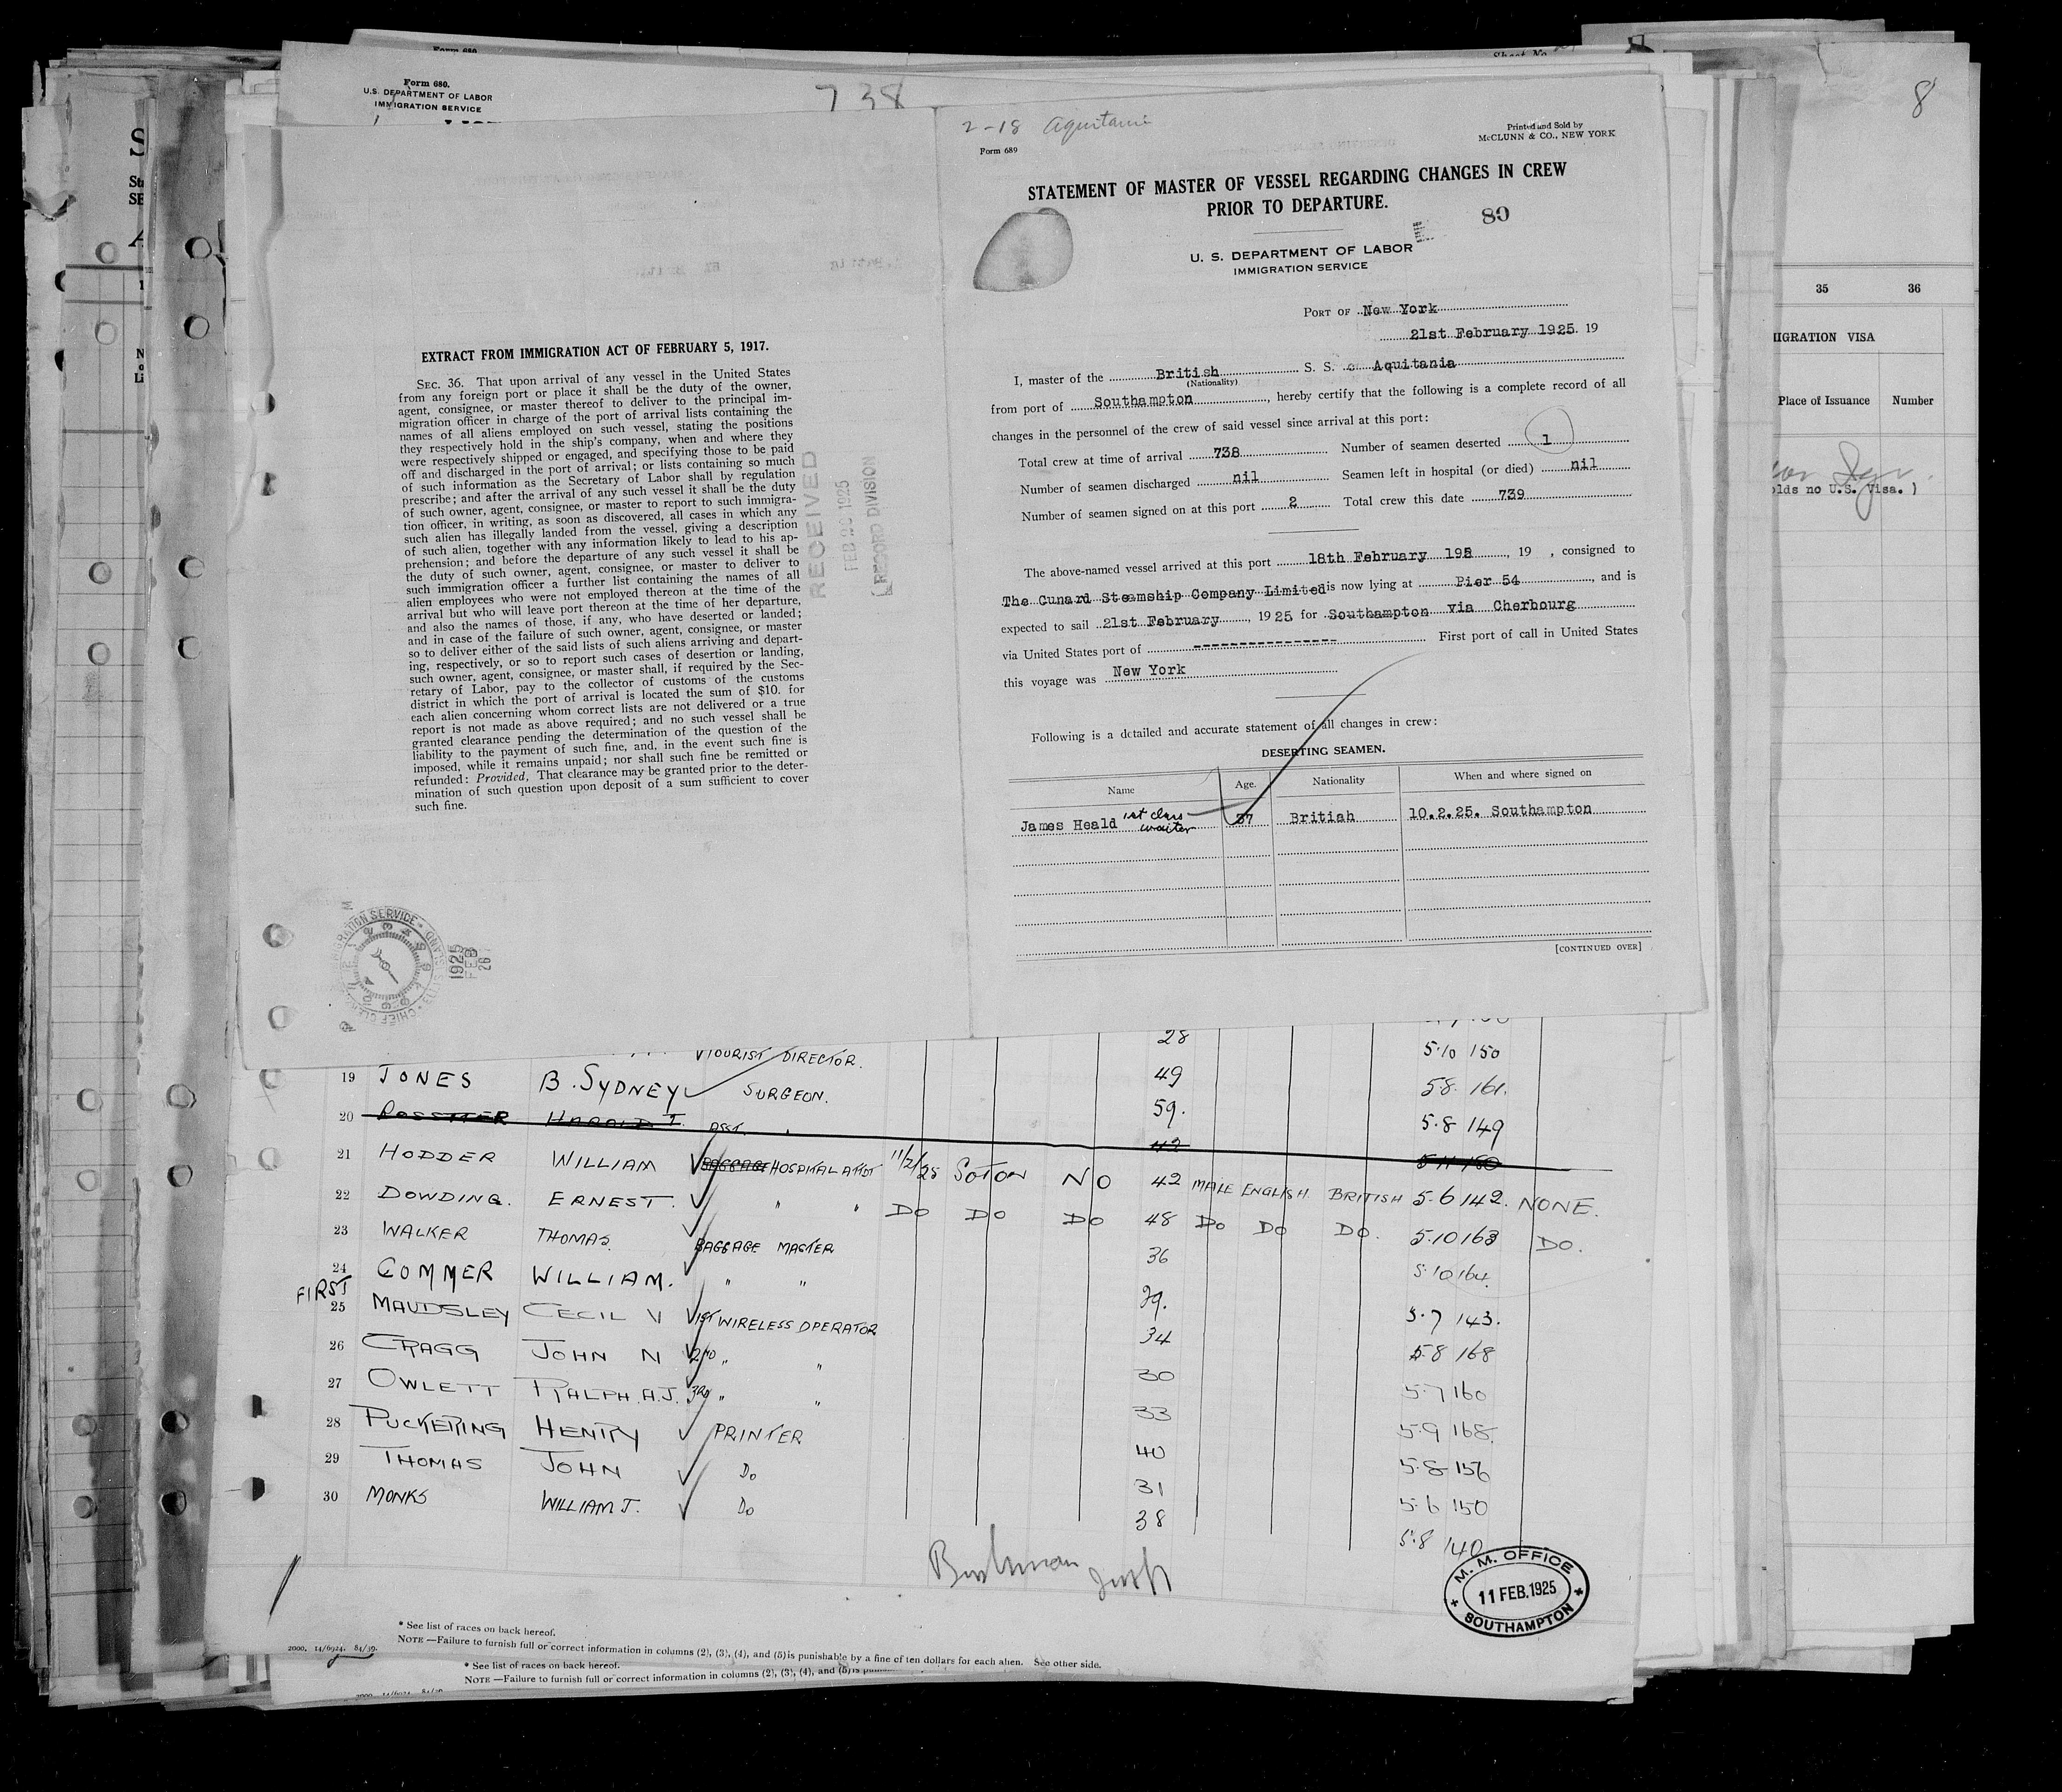 Form 680.
U.S. DEPARTMENT OF LABOR
IMMIGRATION SERVICE
738
8
35 36
IGRATION VISA
Place of Issuance Number
olds no U.S. Visa. )
EXTRACT FROM IMMIGRATION ACT OF FEBRUARY 5, 1917.
SEC. 36. That upon arrival of any vessel in the United States
from any foreign port or place it shall be the duty of the owner,
agent, consignee, or master thereof to deliver to the principal im-
migration officer in charge of the port of arrival lists containing the
names of all aliens employed on such vessel, stating the positions
they respectively hold in the ship's company, when and where they
were respectively shipped or engaged, and specifying those to be paid
off and discharged in the port of arrival; or lists containing so much
of such information as the Secretary of Labor shall by regulation
prescribe; and after the arrival of any such vessel it shall be the duty
of such owner, agent, consignee, or master to report to such immigra-
tion officer, in writing, as soon as discovered, all cases in which any
such alien has illegally landed from the vessel, giving a description
of such alien, together with any information likely to lead to his ap-
prehension; and before the departure of any such vessel it shall be
the duty of such owner, agent, consignee, or master to deliver to
such immigration officer a further list containing the names of all
alien employees who were not employed thereon at the time of the
arrival but who will leave port thereon at the time of her departure,
and also the names of those, if any, who have deserted or landed;
and in case of the failure of such owner, agent, consignee, or master
so to deliver either of the said lists of such aliens arriving and depart-
ing, respectively, or so to report such cases of desertion or landing,
such owner, agent, consignee, or master shall, if required by the Sec-
retary of Labor, pay to the collector of customs of the customs
district in which the port of arrival is located the sum of $10. for
each alien concerning whom correct lists are not delivered or a true
report is not made as above required; and no such vessel shall be
granted clearance pending the determination of the question of the
liability to the payment of such fine, and, in the event such fine is
imposed, while it remains unpaid; nor shall such fine be remitted or
refunded: Provided, That clearance may be granted prior to the deter-
mination of such question upon deposit of a sum sufficient to cover
such fine.
RECEIVED
FEB 1925
RECORD DIVISION
1925
FEB
26
2-18 Aquitania
Form 689
Printed and Sold by
McCLUNN & CO., NEW YORK
STATEMENT OF MASTER OF VESSEL REGARDING CHANGES IN CREW
PRIOR TO DEPARTURE.
80
U. S. DEPARTMENT OF LABOR
IMMIGRATION SERVICE
PORT OF New York
21st February 1925. 19
I, master of the British S. S. Aquitania
(Nationality)
from port of Southampton, hereby certify that the following is a complete record of all
changes in the personnel of the crew of said vessel since arrival at this port:
Total crew at time of arrival 738 Number of seamen deserted 1
Number of seamen discharged nil Seamen left in hospital (or died) nil
Number of seamen signed on at this port 2 Total crew this date 739
The above-named vessel arrived at this port 18th February 195, 19 , consigned to
The Cunard Steamship Company Limited is now lying at Pier 54, and is
expected to sail 21st February, 1925 for Southampton via Cherbourg
via United States port of ---------------- First port of call in United States
this voyage was New York
Following is a detailed and accurate statement of all changes in crew:
DESERTING SEAMEN.
Name Age. Nationality When and where signed on
James Heald 1st class waiter 37 British 10.2.25. Southampton
[CONTINUED OVER]
28
TOURIST DIRECTOR. 5.10 150
19 JONES B. SYDNEY SURGEON. 49 5.8. 161.
20 ROSSITER HAROLD T. ASST. " 59. 5.8 149
42 5.11 150
21 HODDER WILLIAM BAGGAGE HOSPITAL ATTDT 11/2/25 SOTON NO 42 MALE ENGLISH. BRITISH 5.6 142. NONE.
22 DOWDING. ERNEST. " " DO DO DO 48 DO DO DO. 5.10 163 DO.
23 WALKER THOMAS. BAGGAGE MASTER 36 5.10 164.
24 COMMER WILLIAM. " " 29. 5.7 143.
FIRST
25 MAUDSLEY CECIL V 1ST WIRELESS OPERATOR 34 5.8 168
26 CRAGG JOHN N 2ND " " 30 5.7 160
27 OWLETT RALPH. A.J. 3RD " " 33 5.9 168.
28 PUCKERING HENRY PRINTER 40 5.8 156
29 THOMAS JOHN DO 31 5.6 150
30 MONKS WILLIAM J. DO 38 5.8 140
M. M. OFFICE
11 FEB. 1925
SOUTHAMPTON
* See list of races on back hereof.
NOTE —Failure to furnish full or correct information in columns (2), (3), (4), and (5) is punishable by a fine of ten dollars for each alien. See other side.
2000. 14/6924. 84/39.
* See list of races on back hereof.
NOTE —Failure to furnish full or correct information in columns (2), (3), (4), and (5) is